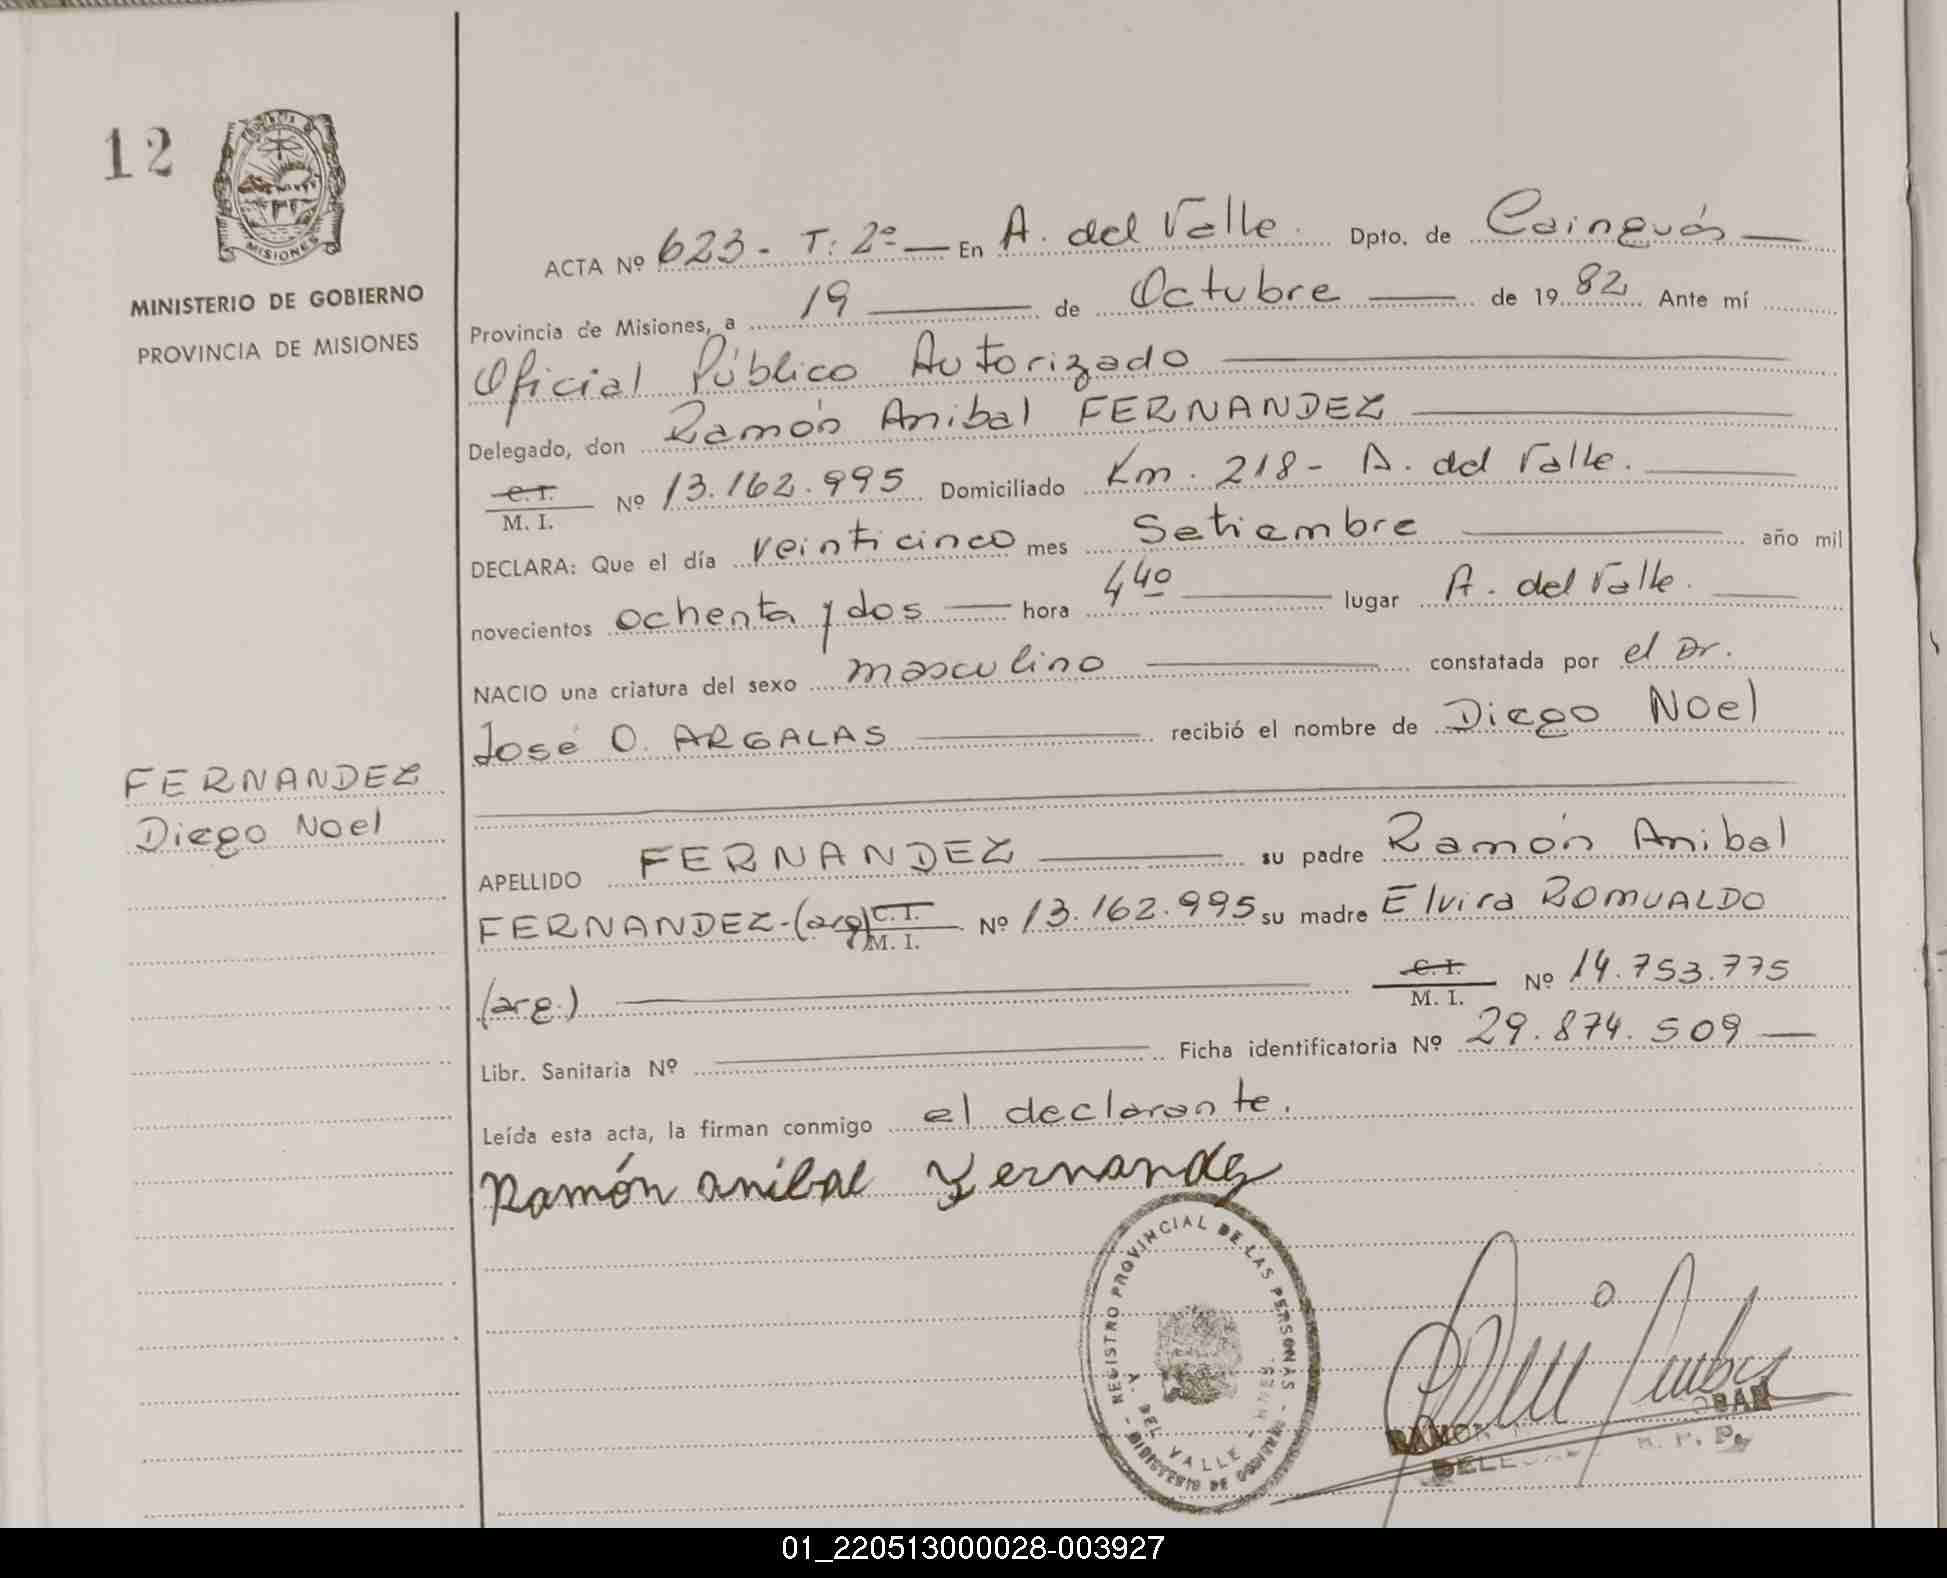 12
PROVINCIA DE
MISIONES
MINISTERIO DE GOBIERNO
PROVINCIA DE MISIONES
FERNANDEZ
Diego Noel
ACTA Nº 623 - T: 2º — En A. del Valle. Dpto. de Cainguás —
Provincia de Misiones, a 19 — de Octubre — de 1982 Ante mí
Oficial Público Autorizado
Delegado, don Ramón Anibal FERNANDEZ
C.I.
M. I. Nº 13.162.995 Domiciliado Km. 218 - A. del Valle.
DECLARA: Que el día veinticinco mes Setiembre año mil
novecientos ochenta y dos — hora 4 40 lugar A. del Valle.
NACIO una criatura del sexo masculino constatada por el Dr.
José O. ARGALAS recibió el nombre de Diego Noel
APELLIDO FERNANDEZ su padre Ramón Anibal
FERNANDEZ - (arg) C.I. M. I. Nº 13.162.995 su madre Elvira ROMUALDO
(arg.) C.I. M. I. Nº 14.753.775
Libr. Sanitaria Nº Ficha identificatoria Nº 29.874.509 —
Leída esta acta, la firman conmigo el declarante.
Ramón anibal Fernandez
REGISTRO PROVINCIAL DE LAS PERSONAS
A. DEL VALLE
MINISTERIO DE GOBIERNO
RAMON
01_220513000028-003927